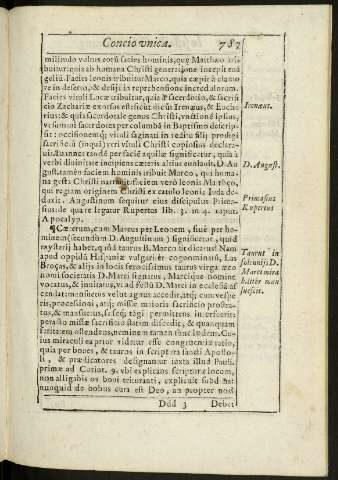 Concio vnica. 787
militudo vultus eorũ facies hominis, quę Matthæo tri-
buitur: quia ab humana Christi generatione incepit euã
geliũ. Facies leonis tribuitur Marco, quia cœpit à clamo
re in deserto, & desijt in reprehensione incredulorum.
Facies vituli Lucæ tribuitur, quia à sacerdotio, & sacrifi
cio Zachariæ exorsus est: sicut dicũt Irenæus, & Euche
rius: & quia sacerdotale genus Christi, vnctionẽ ipsius,
scripsit: occisionemq; vituli saginati in reditu filij prodigi
sacrificiũ (inqua) veri vituli Christi copiosus declara-
uit. Ioannes tandẽ per faciẽ aquilæ significatur, quia à
verbi diuinitate incipiens cæteris altius euolauit. D. Au
gust. tamẽ faciem hominis tribuit Marco, qui huma
na gesta Christi narrauit: faciem verò leonis Matthęo,
qui regiam originem Christi ex catulo leonis Iuda de du-
xit. Augustinum sequitur eius discipulus Prima-
sius: de qua re legatur Rupertus lib. 3. in 4. caput
Apocalyp.
¶ Cæterum, cum Marcus per Leonem, siue per ho-
minem (secundùm D. Augustinum) significetur, quid
mysterij habet, quòd taurus B. Marco sit dicatus? Nam
apud oppidũ Hispaniæ vulgariter cognominatũ, Las
Broças, & alijs in locis ferocissimus taurus virga
nomi societatis D. Marci signatus, Marcique nomine
vocatus, & inuitatus, vt ad festũ D. Marci in ecclesia
missæ maioris sacrificio prostra-
tus, & mansuetus, seseq; tãgi permittens
peracto missæ sacrificio statim discedit, & quamquam
feritatem ostendens, neminem tamen tunc lædens. Cu-
ius miraculi ea prior videtur esse congruentia ratio,
quia per boues, & tauros in scriptura sancti Aposto-
li, & prædicatores designantur iuxta illud Pauli.
primæ ad Corint. 9. vbi explicans scripturæ locum,
non alligabis os boui trituranti, explicuit subdens:
nunquid de bobus cura est Deo, an propter nos?
Ddd 3 Debet
Irenæus.
D. August.
Primasius
Rupertus
Taurus in
solennijs D.
Marci mira
biliter man
suescit.